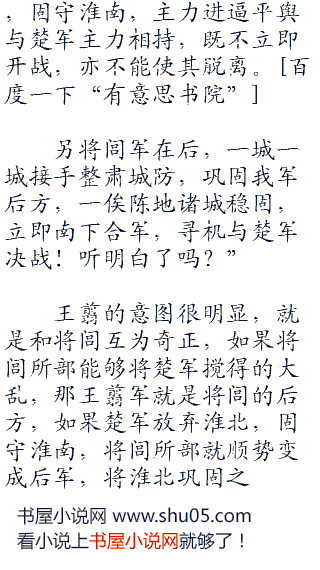 ，固守淮南，主力进逼平舆
与楚军主力相持，既不立即
开战，亦不能使其脱离。[百
度一下“有意思书院”]
另将闾军在后，一城一
城接手整肃城防，巩固我军
后方，一俟陈地诸城稳固，
立即南下合军，寻机与楚军
决战！听明白了吗？”
王翦的意图很明显，就
是和将闾互为奇正，如果将
闾所部能够将楚军搅得的大
乱，那王翦军就是将闾的后
方，如果楚军放弃淮北，固
守淮南，将闾所部就顺势变
成后军，将淮北巩固之
书屋小说网 www.shu05.com
看小说上书屋小说网就够了！